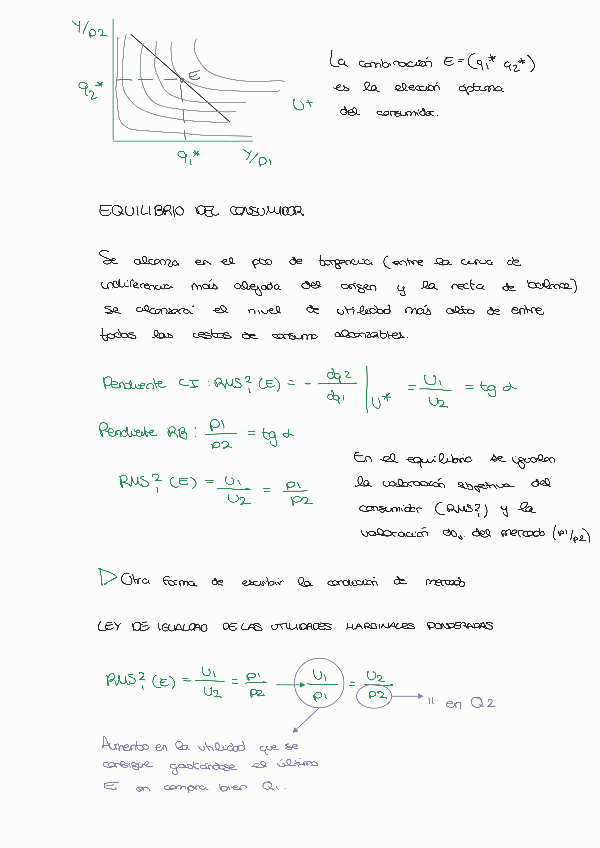 Y/p2
q2*
E
U+
q1*
Y/p1
La combinación E=(q1* q2*)
es la elección óptima
del consumidor.
EQUILIBRIO DEL CONSUMIDOR
Se alcanza en el pto de tangencia (entre la curva de
indiferencia más alejada del origen y la recta de balance)
se alcanzará el nivel de utilidad más alto de entre
todas las cestas de consumo alcanzables.
Pendiente CI : RMS²₁ (E) = - dq2/dq1 | U* = U1/U2 = tg α
Pendiente RB : p1/p2 = tg α
RMS²₁ (E) = U1/U2 = p1/p2
En el equilibrio se igualan
la valoración subjetiva del
consumidor (RMS²₁) y la
valoración del mercado (p1/p2)
Otra forma de escribir la condición de mercado
LEY DE IGUALDAD DE LAS UTILIDADES MARGINALES PONDERADAS
RMS²₁ (E) = U1/U2 = p1/p2 → U1/p1 = U2/p2 → " en Q2
Aumento en la utilidad que se
consigue gastándose el último
€ en compra bien Q1.